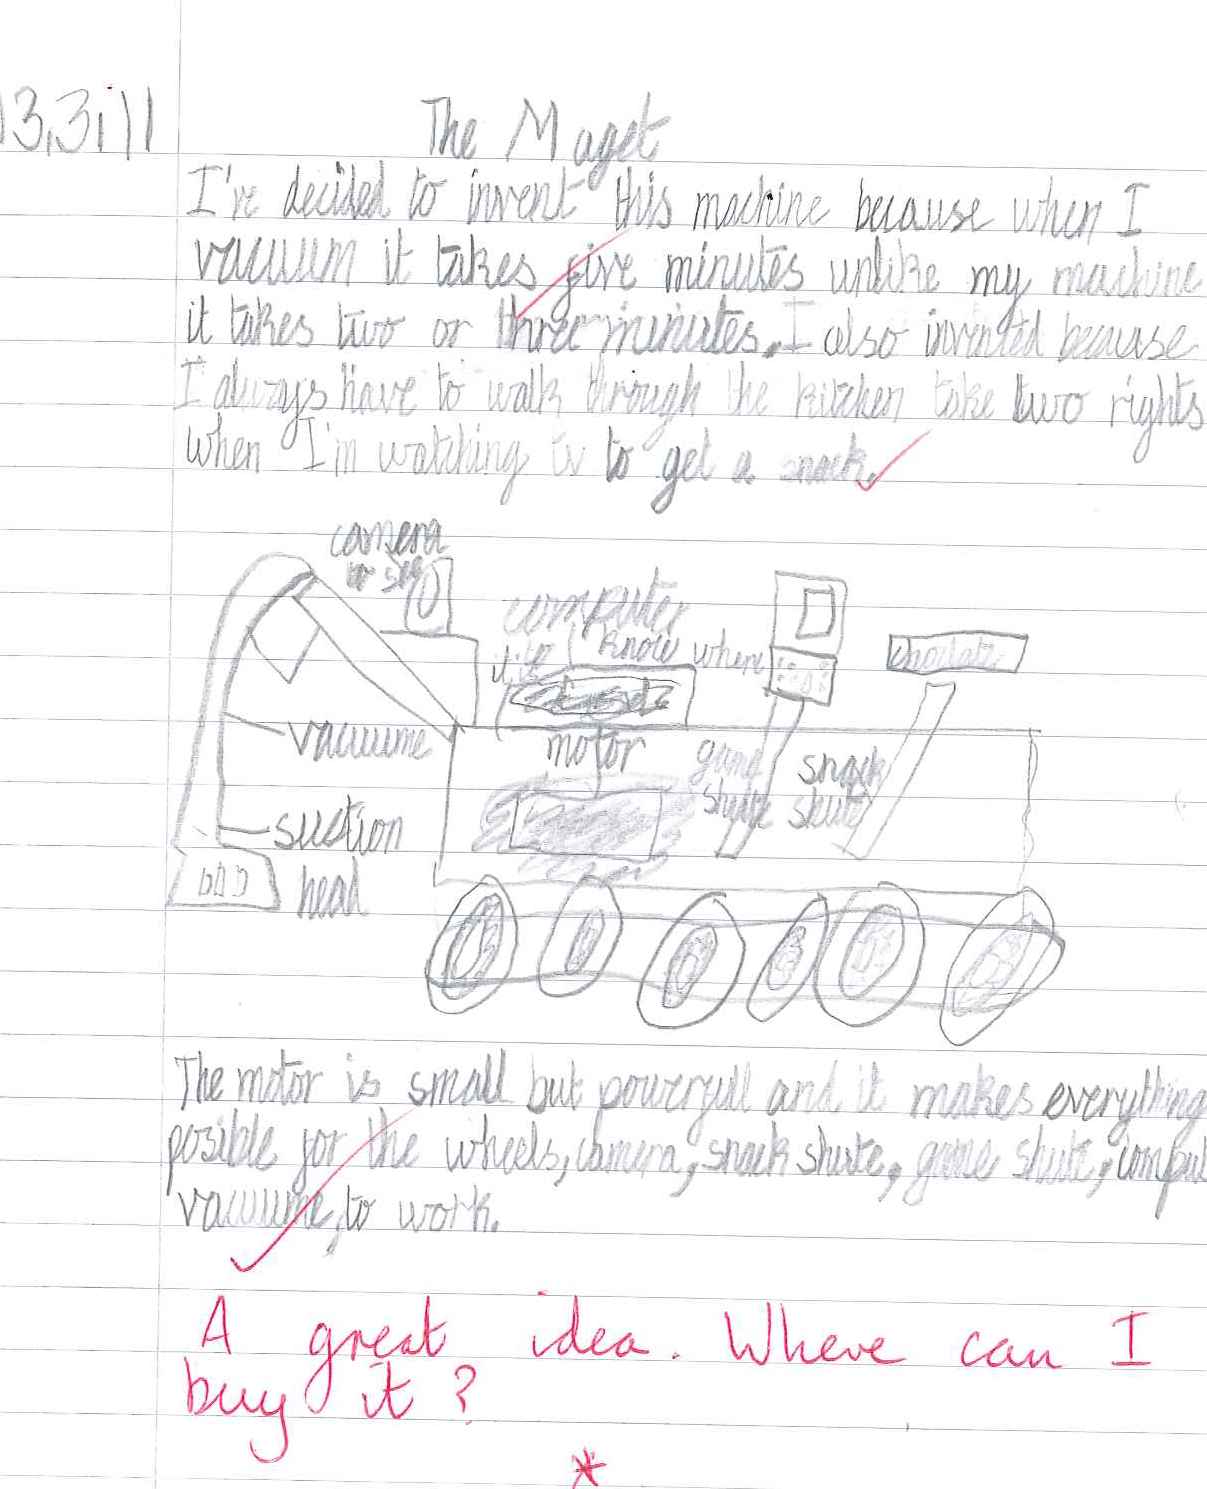 13,3,11
The Maget
I've decided to invent this machine because when I
vacuum it takes five minutes unlike my machine
it takes two or three minutes. I also invented because
I always have to walk through the kitchen take two rights
when I'm watching tv to get a snack.
camera
computer
know where
vacuume
motor
game
snack
skute
suction
head
The motor is small but powerfull and it makes everything
posible for the wheels, camera, snack shute, game shute, comput
vacuume, to work.
A great idea. Where can I
buy it?